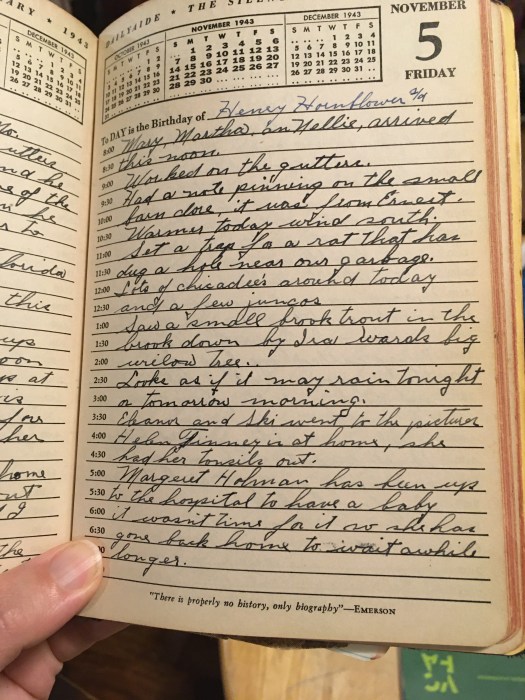 ARY ★ 1943
DAILYAIDE ★ THE SILENT
NOVEMBER
5
FRIDAY
OCTOBER 1943
NOVEMBER 1943
S M T W T F S
1 2 3 4 5 6
7 8 9 10 11 12 13
14 15 16 17 18 19 20
21 22 23 24 25 26 27
28 29 30
DECEMBER 1943
S M T W T F S
1 2 3 4
5 6 7 8 9 10 11
12 13 14 15 16 17 18
19 20 21 22 23 24 25
26 27 28 29 30 31
To DAY is the Birthday of Henry Hornblower
8:00 Mary, Martha, an Nellie, arrived
8:30 this noon.
9:00 Worked on the gutters.
9:30 Had a note pinning on the small
10:00 barn dore, it was from Ernest.
10:30 Warmer today wind south.
11:00 Set a trap for a rat that has
11:30 dug a hole near our garbage.
12:00 Lots of chicadies around today
12:30 and a few juncos
1:00 Saw a small brook trout in the
1:30 brook down by Ira wards big
2:00 wilow tree..
2:30 Looks as if it may rain tonight
3:00 or tomorrow morning.
3:30 Eleanor and Ski went to the pictures
4:00 Helen Finney is at home, she
4:30 had her tonsils out.
5:00 Margeret Holman has been up
5:30 to the hospital to have a baby
6:00 it wasn't time for it so she has
6:30 gone back home to wait awhile
longer.
"There is properly no history, only biography"—EMERSON